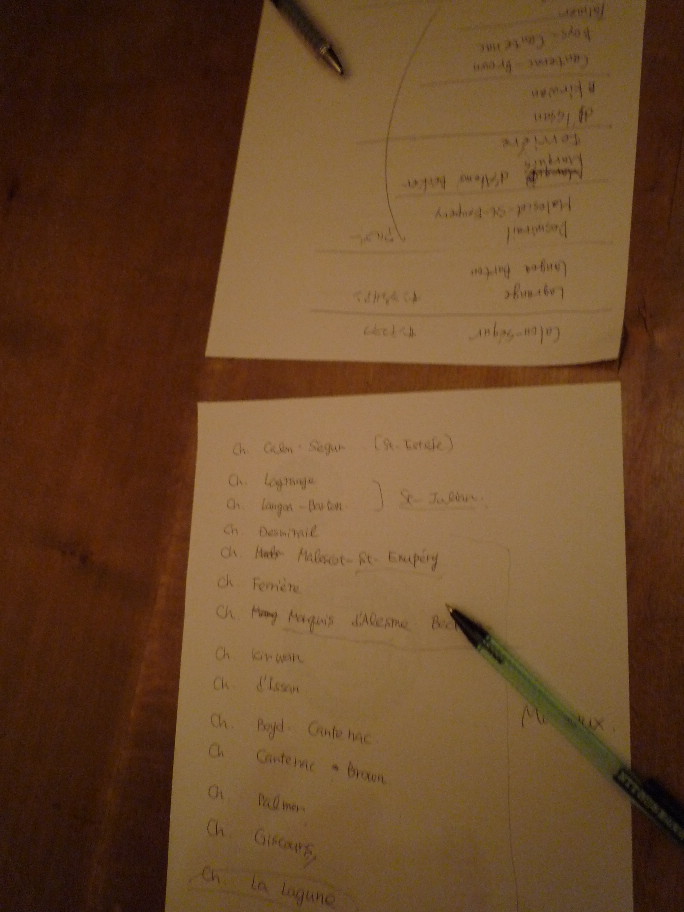 Palmer
Boyd-Cantenac
Cantenac-Brown
Kirwan
d'Issan
Ferrière
Marquis
d'Alesme Becker
Malescot-St-Exupéry
Desmirail
Langoa Barton
Lagrange
Calon-Ségur
Ch. Calon-Ségur (St. Estèfe)
Ch. Lagrange
Ch. Langoa-Barton } St-Julien.
Ch. Desmirail
Ch. Malescot-St-Exupéry
Ch. Ferrière
Ch. Marquis d'Alesme Bec
Ch. Kirwan
Ch. d'Issan
Ch. Boyd-Cantenac
Ch Cantenac-Brown
Ch. Palmer
Ch. Giscours
Ch. La Lagune